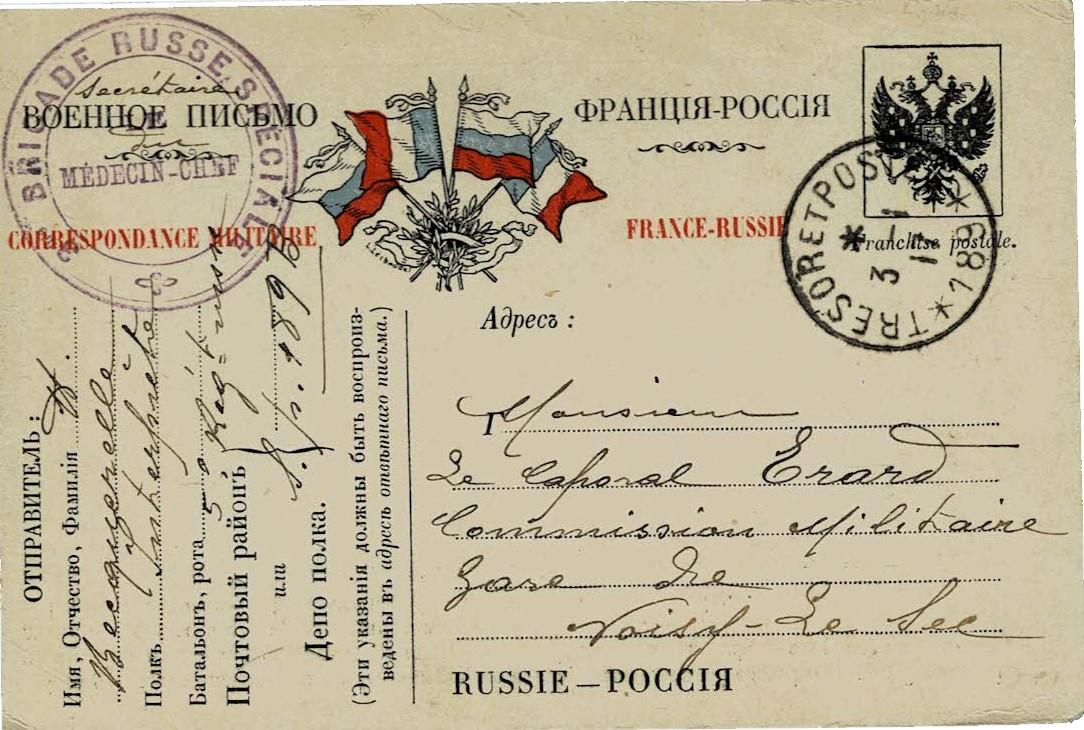 3e BRIGADE RUSSE SPÉCIALE
secrétaire
DE
du
MÉDECIN-CHEF
ВОЕННОЕ ПИСЬМО
ФРАНЦІЯ-РОССІЯ
CORRESPONDANCE MILITAIRE
FRANCE-RUSSIE
Franchise postale.
TRESOR ET POSTES * 189 *
3 1 17
Адресъ :
Monsieur
Le Caporal Erard
Commission Militaire
Gare de
Noisy-Le Sec
RUSSIE – РОССІЯ
ОТПРАВИТЕЛЬ:
Имя, Отчество, Фамилія
Becquerelle
Полкъ Interprète
Батальонъ, рота 5e Regt russe
Почтовый районъ S. p. 189
или
Депо полка.
(Эти указанія должны быть воспроиз-
ведены въ адресѣ отвѣтнаго письма.)